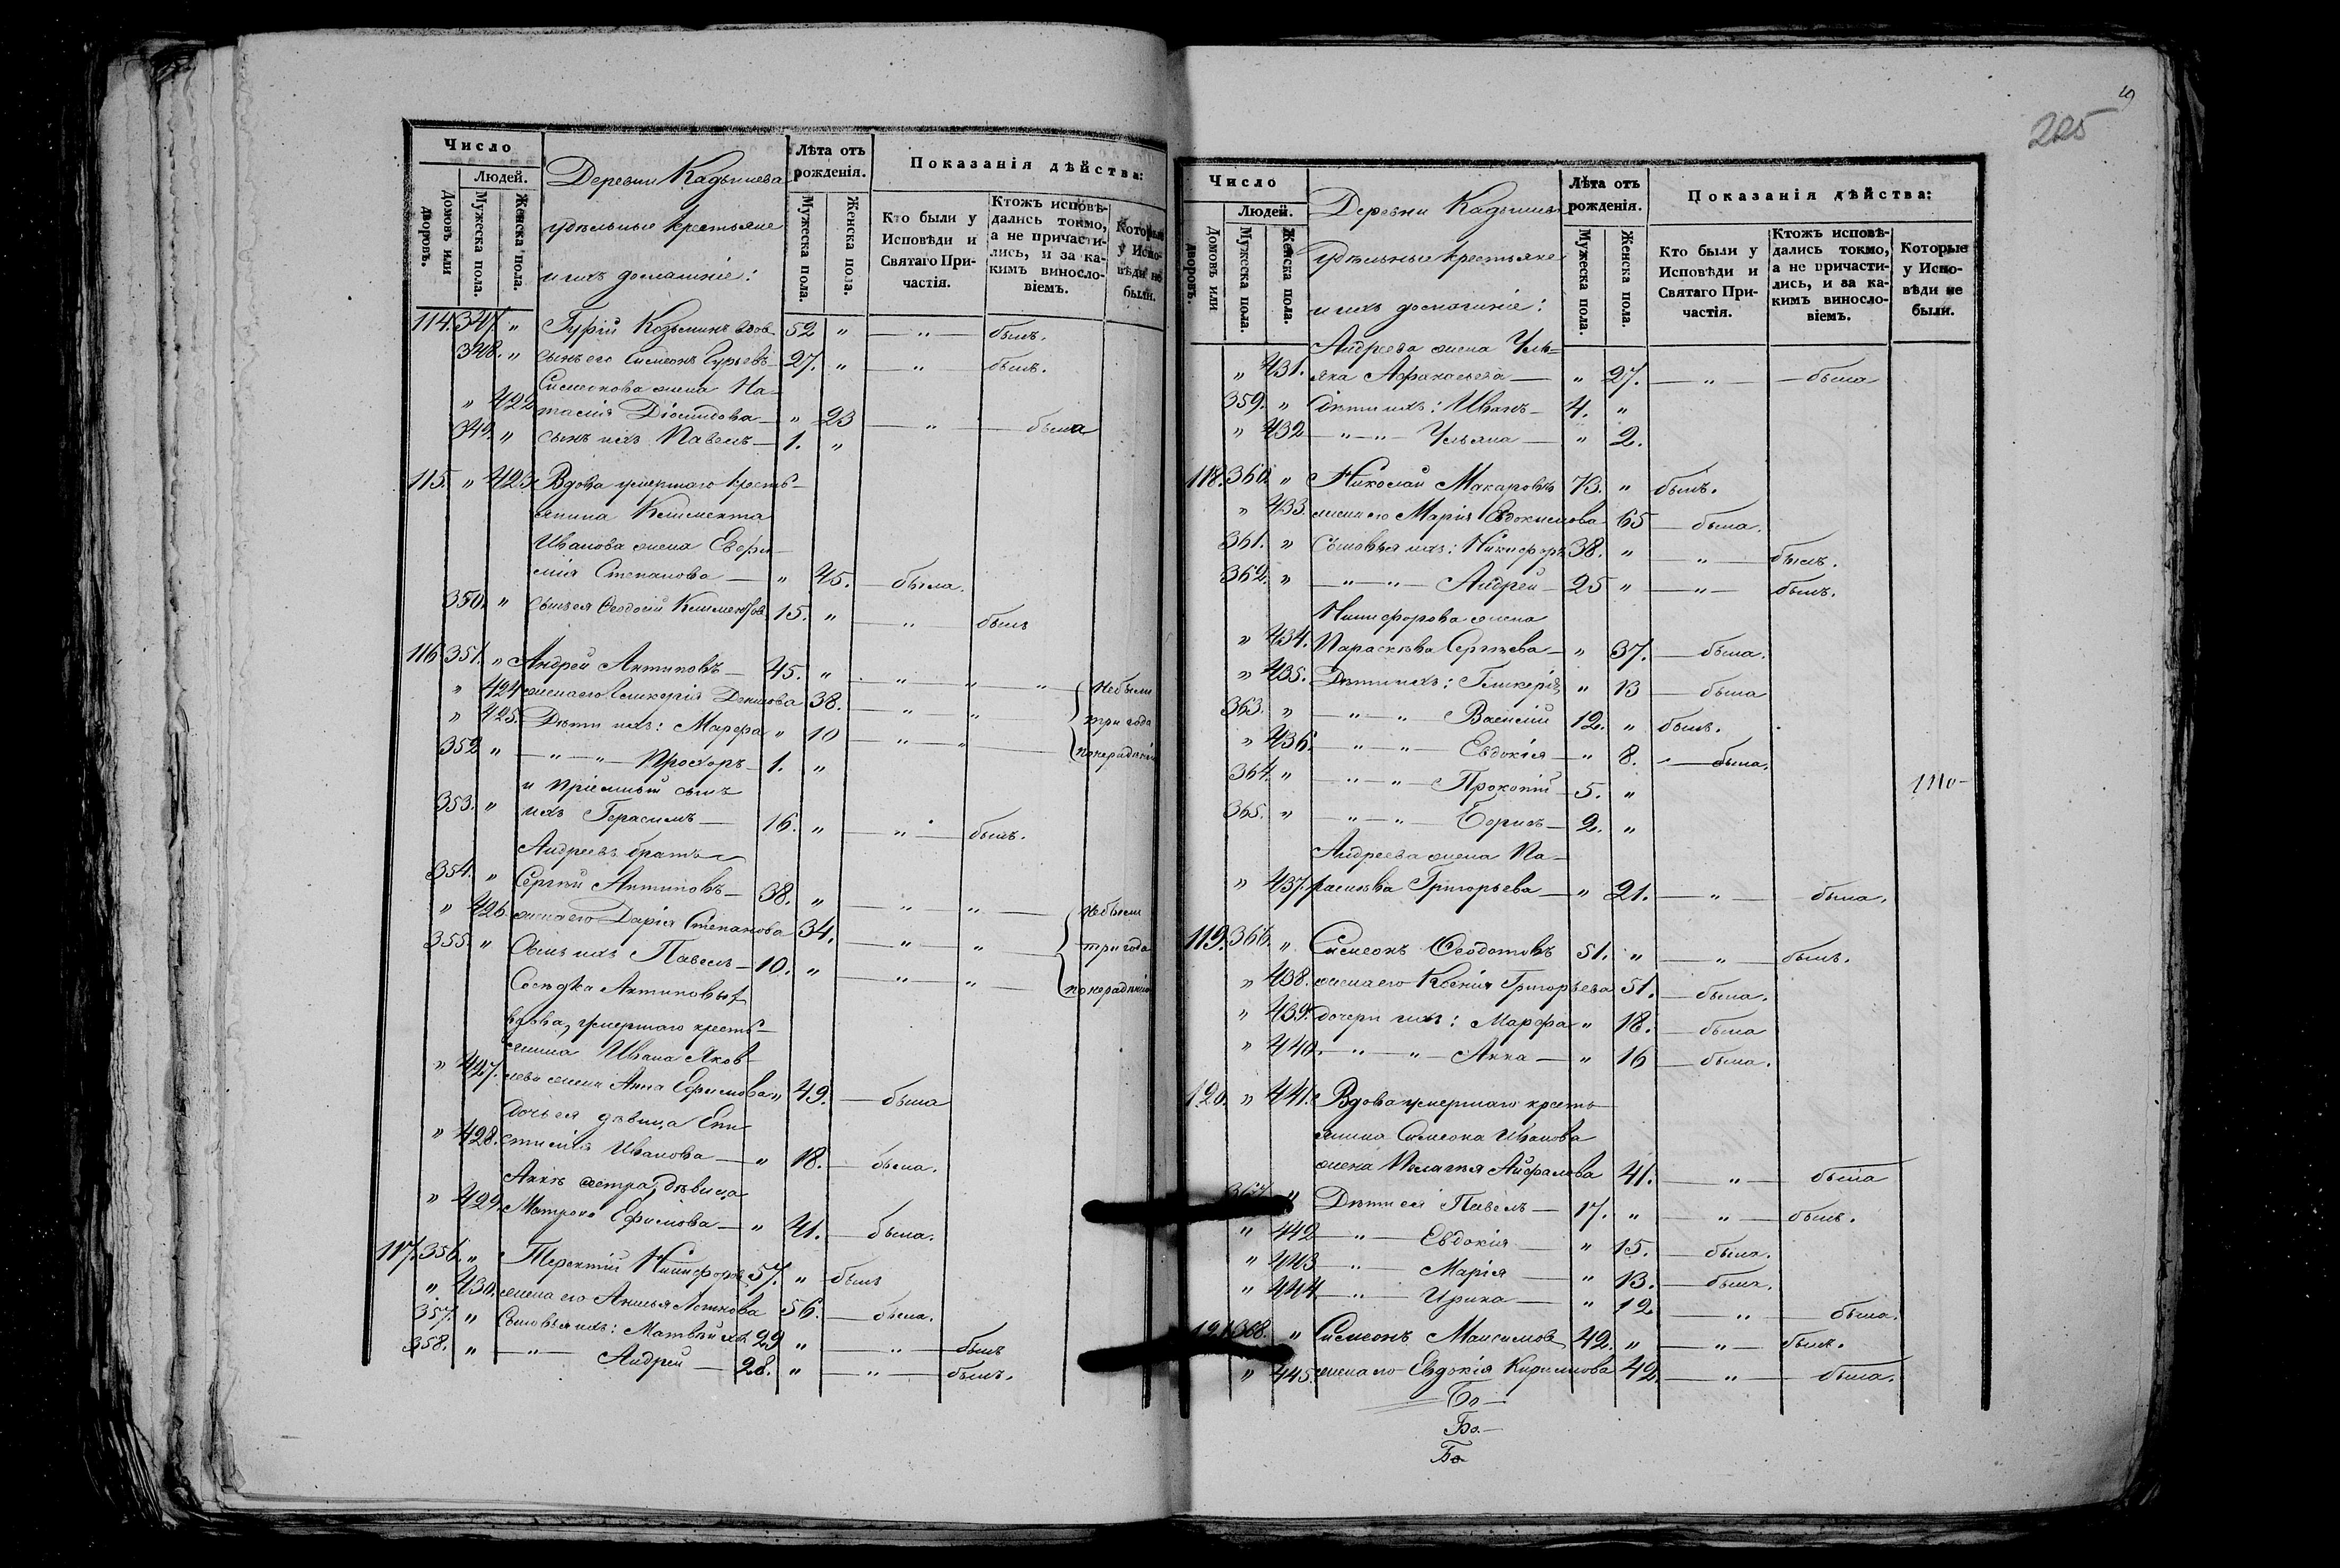 Число
Людей.
Домовъ или дворовъ.
Мужеска пола.
Женска пола.
Деревни Кадышева
удѣльные крестьяне
и ихъ домашніе:
Лѣта отъ рожденія.
Мужеска пола.
Женска пола.
Показанія дѣйства:
Кто были у Исповѣди и Святаго Причастія.
Ктожъ исповѣдались токмо, а не причастились, и за какимъ винословіемъ.
Которые у Исповѣди не были.
114. 347. " Гурій Козьминъ вдов 52 " — " — былъ.
348. " сынъ его Симеонъ Гурьевъ 27. " — " — былъ.
Симеонова жена На-
" 422 талія Діомидова — " 23 — " — была
349. " сынъ ихъ Павелъ — 1. "
115. " 423. Вдова умершаго кресть-
янина Климента
Иванова жена Евфи-
мія Степанова — " 45. — была.
350. " сынъ ея Ѳеодосій Климентов 15. " — " — былъ
116 351. " Андрей Антиповъ — 45. " — " — " — " — не были
" 424 жена его Гликерія Денисова 38. — " — " — три года
" 425. Дѣти ихъ: Марѳа " 10 — " — " — по нерадѣнію
352 " — " — " — Прохоръ — 1. "
и пріемный сынъ
353. " ихъ Герасимъ — 16. " — " — былъ.
Андреевъ братъ
354. " Сергѣй Антиповъ — 38. " — " — " — не были
" 426. жена его Дарія Степанова 34. — " — " — три года
355. " Сынъ ихъ Павелъ — 10. " — " — " — по нерадѣнію
Сосѣдка Антиповыхъ
вдова, умершаго кресть-
янина Ивана Яков-
" 427. лева жена Анна Ефимова " 49. — была
Дочь ея дѣвица Епи-
" 428. стимія Иванова — " 18. — была.
Аннѣ сестра, дѣвица
" 429. Матрона Ефимова — " 41. — была.
117. 356. " Терентій Никифоров 57. " — былъ
" 430. жена его Анисья Логинова 56. — была.
357. " Сыновья ихъ: Матвѣй хв. 29 " — " — былъ
358. " — " — Андрей — 28. " — " — былъ.
205
Число
Людей.
Домовъ или дворовъ.
Мужеска пола.
Женска пола.
Деревни Кадышева
Удѣльные крестьяне
и ихъ домашніе:
Лѣта отъ рожденія.
Мужеска пола.
Женска пола.
Показанія дѣйства:
Кто были у Исповѣди и Святаго Причастія.
Ктожъ исповѣдались токмо, а не причастились, и за какимъ винословіемъ.
Которые у Исповѣди не были.
Андреева жена Улья-
" 431. яна Афанасьева — " 27. — " — была
359. " Дѣти ихъ: Иванъ — 4. "
" 432 — " — " — Ульяна — " 2.
118. 360. " Николай Макаровъ 73. " былъ.
" 433. жена его Марія Евдокимова 65 — была.
361. " Сыновья ихъ: Никифоръ 38. " — " — былъ.
362. " — " — " — Андрей — 25 " — " — былъ.
Никифорова жена
" 434. Параскѣва Сергѣева — " 37. — была.
" 435. Дѣти ихъ: Гликерія " 13 — была
363. " — " — " Василій 12. " былъ.
" 436. — " — " — Евдокія — " 8. — была.
364. " — " — " — Прокопій — 5. "
365. " — " — " — Борисъ — 2. "
Андреева жена Па-
" 437. раскѣва Григорьева — " 21. — " — была.
119. 366. " Симеонъ Ѳеодотовъ 51. " — " — былъ.
" 438. жена его Ксенія Григорьева 51. — была.
" 439. дочери ихъ: Марѳа " 18. — была
" 440. — " — " — Анна — " 16 — была.
120. " 441. Вдова умершаго кресть-
янина Симеона Иванова
жена Пелагія Айфалова 41. — " — была
367. " Дѣти ея Павелъ — 17. " — " — былъ.
" 442 — " — Евдокія — " 15. — была.
" 443 — " — Марія — " 13. — была.
" 444 — " — Ирина — " 12. — " — была.
121. 368. " Симеонъ Максимов 42. " — " — былъ.
" 445. жена его Евдокія Кирилова 42. — " — была.
Бо —
Бо. —
Бо